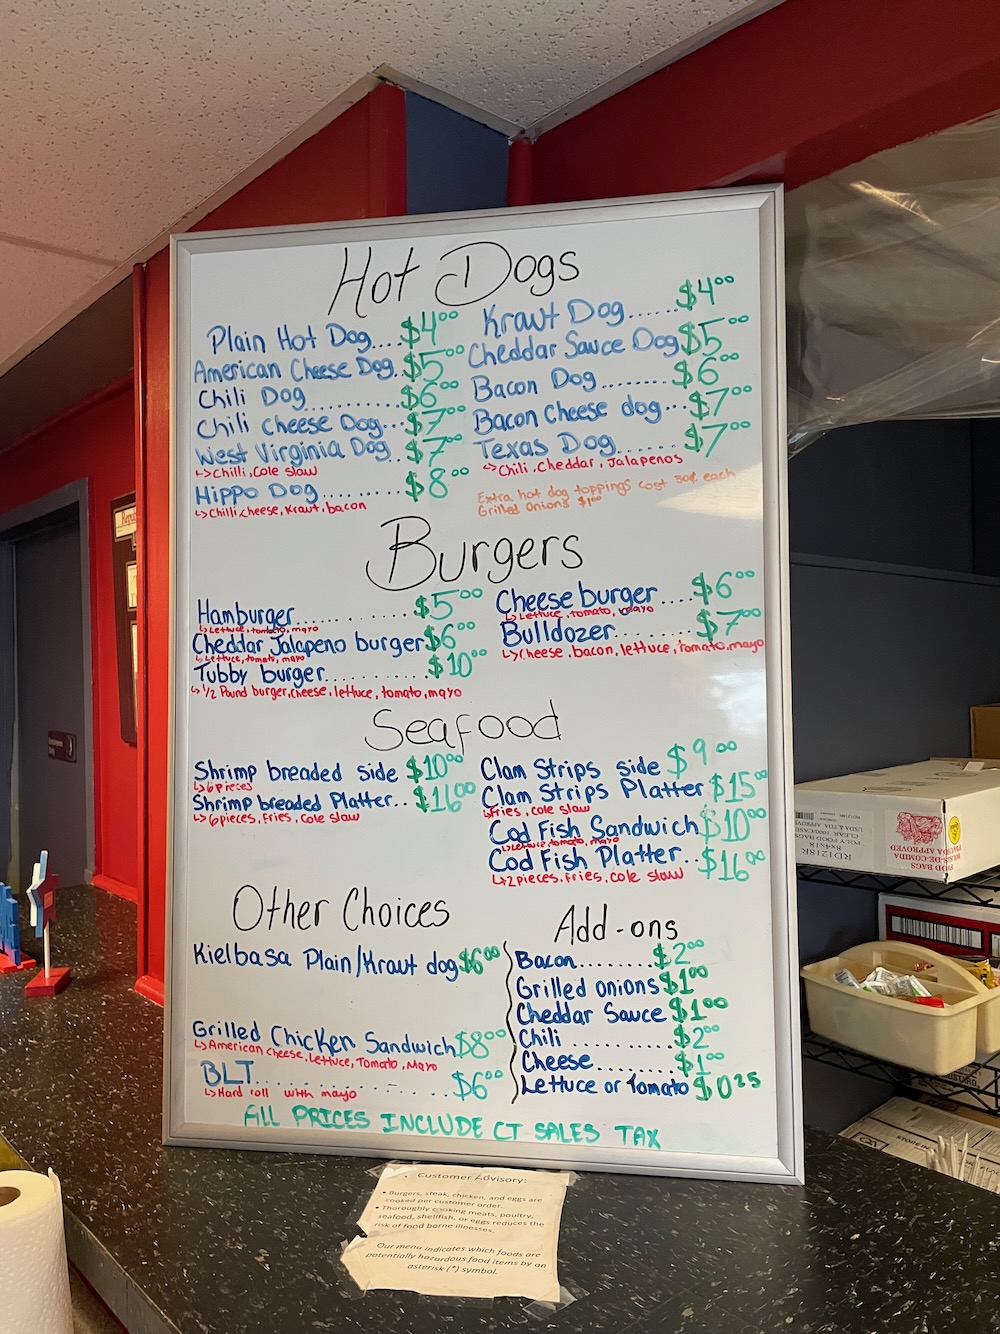 Hot Dogs
Plain Hot Dog....$4.00
American Cheese Dog..$5.00
Chili Dog..........$6.00
Chili cheese Dog...$7.00
West Virginia Dog..$7.00
↳Chilli, Cole slaw
Hippo Dog.........$8.00
↳Chilli,cheese, Kraut, bacon
Kraut Dog......$4.00
Cheddar Sauce Dog $5.00
Bacon Dog........$6.00
Bacon Cheese dog...$7.00
Texas Dog.......$7.00
↳Chili, Cheddar, Jalapenos
Extra hot dog toppings cost 50¢ each
Grilled Onions $1.00
Burgers
Hamburger............$5.00
↳Lettuce, tomato, mayo
Cheddar Jalapeno burger $6.00
↳Lettuce, tomato, mayo
Tubby burger...........$10.00
↳1/2 Pound burger, cheese, lettuce, tomato, mayo
Cheese burger....$6.00
↳Lettuce, tomato, mayo
Bulldozer.........$7.00
↳Cheese, bacon, lettuce, tomato, mayo
Seafood
Shrimp breaded side $10.00
↳6 pieces
Shrimp breaded Platter..$16.00
↳6 pieces, fries, cole slaw
Clam Strips side $9.00
Clam Strips Platter $15.00
↳fries, cole slaw
Cod Fish Sandwich $10.00
↳Lettuce, tomato, mayo
Cod Fish Platter..$16.00
↳2 pieces, fries, cole slaw
Other Choices
Kielbasa Plain/Kraut dog $6.00
Grilled Chicken Sandwich $8.00
↳American Cheese, Lettuce, Tomato, Mayo
BLT...................$6.00
↳Hard roll with mayo
Add-ons
Bacon........$2.00
Grilled onions $1.00
Cheddar Sauce $1.00
Chili..........$2.00
Cheese........$1.00
Lettuce or Tomato $0.25
ALL PRICES INCLUDE CT SALES TAX
Customer Advisory:
• Burgers, steak, chicken, and eggs are
cooked per customer order.
• Thoroughly cooking meats, poultry,
seafood, shellfish, or eggs reduces the
risk of food borne illnesses.
Our menu indicates which foods are
potentially hazardous food items by an
asterisk (*) symbol.
RD1218R
FOOD BAGS